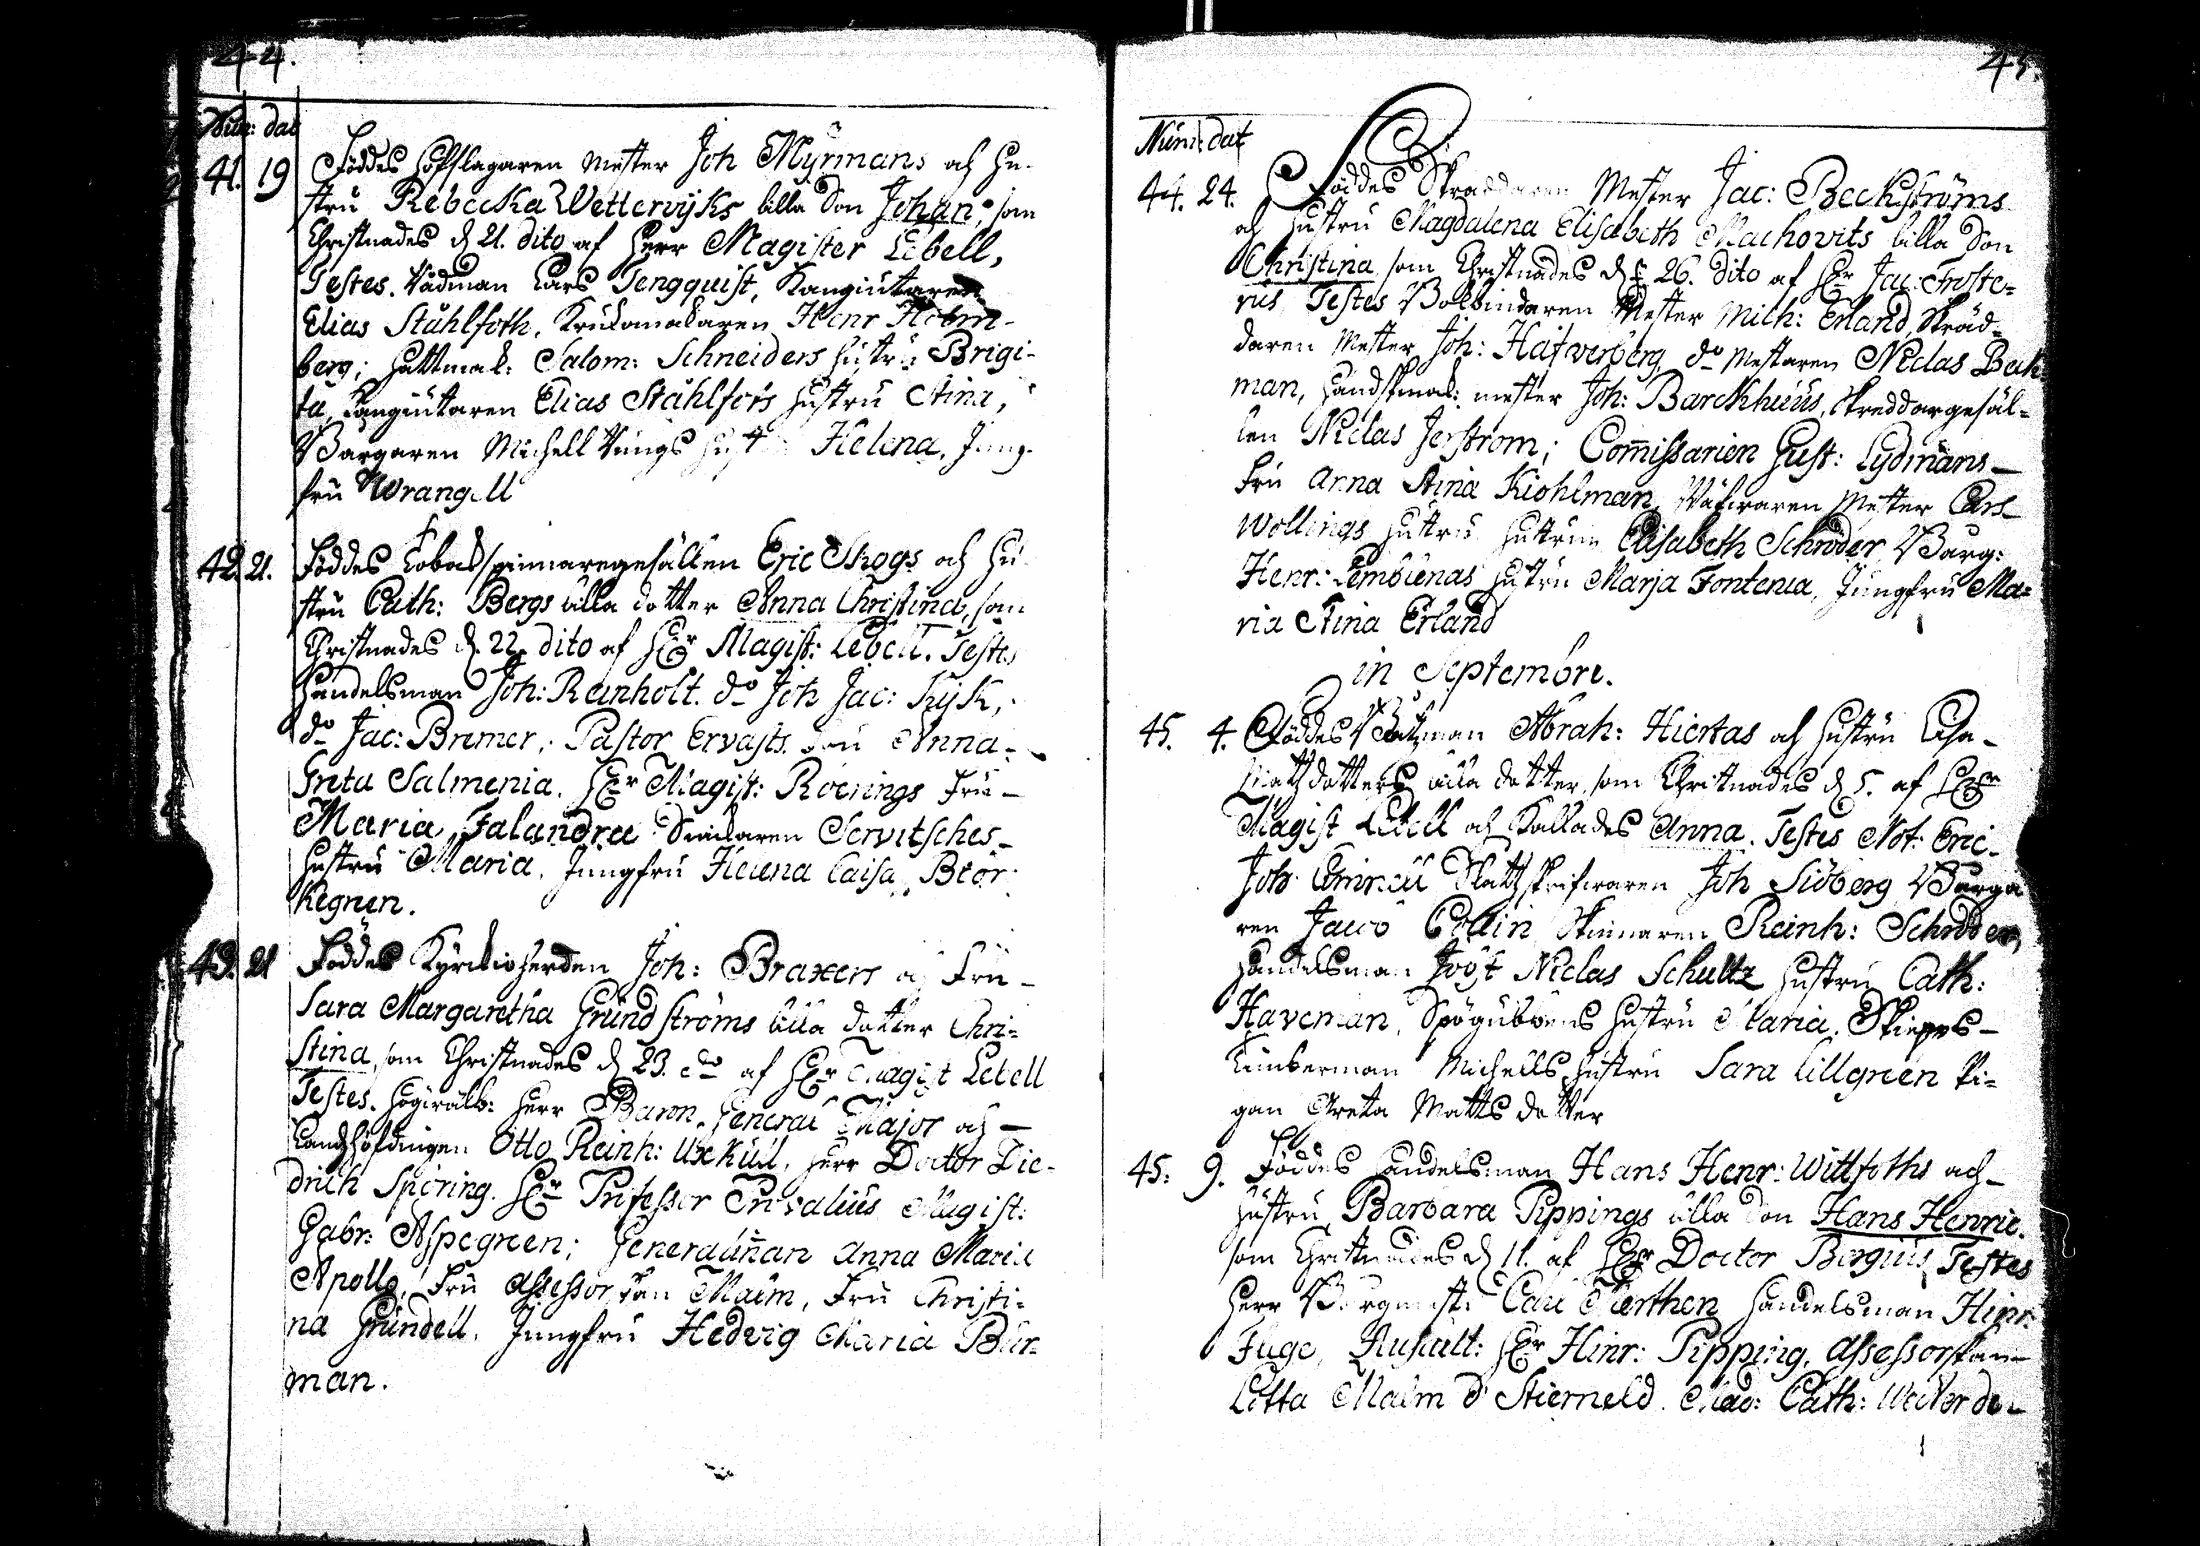 44.
Num: dat
41. 19 Föddes Hofslagaren Mester Joh Myrmans och Hu-
stru Rebecka Wetterwijks lilla Son Johan, som
Christnades d 21. dito af Herr Magister Lebell,
Testes. Rådman Lars Tengquist, Kangiutaren
Elias Ståhlfoth, Krukomakaren Henr Holm-
berg; Hattmak: Salom: Schneiders Hustru Brigi-
ta, Kangiutaren Elias Ståhlfots Hustru Stina,
Borgaren Michell Kungs Hust Helena, Jung-
fru Wrangell
42. 21. Föddes Tobaksspinnaregesällen Eric Skogs och Hu-
stru Cath: Bergs lilla dotter Anna Christina, som
Christnades d. 22. dito af Hr Magist: Lebell. Testes
Handelsman Joh: Reinholt. do Joh Jac: Kijk,
do Jac: Bremer, Pastor Ervasts Fru Anna-
Greta Salmenia. Hr Magist: Roerings Fru-
Maria Falandra Snickaren Servitsches-
Hustru Maria. Jungfru Helena Caisa Biör-
kegreen.
43. 21 Föddes Kyrckioherden Joh: Braxers och Fru-
Sara Margaretha Grundströms lilla dotter Chri-
stina, som Christnades d 23. do af Hr Magist Lebell
Testes. Högwälb: Herr Baron, General Major och-
Landshöfdingen Otto Reinh: Uxkull, Herr Doctor Die-
drich Spöring. Hr Professor Privalius Magist:
Gabr: Aspegreen; Generalinnan Anna Maria
Apollo, Fru Assessorskan Malm, Fru Christi-
na Grundell. Jungfru Hedvig Maria Bur-
man.
45.
Num: dat
44. 24. Föddes Skraddaren Mester Jac: Beckströms
och Hustru Magdalena Elisabeth Machovits lilla Don
Christina som Christnades d 26. dito af Hr Jac: Froste-
rus Testes Bokbindaren Mester Mich: Erland, Skräd-
daren Mester Joh: Hafverberg, do Mestaren Niclas Beck
man, Handskmak: mester Joh: Barckhuus, Skreddargesäl-
len Niclas Jerström; Commissarien Gust: Lydmans-
Fru Anna Stina Kiohlman, Väfwaren Mester Carl
Wollings Hustru Hustrun Elisabeth Schröder, Borg:
Henr: Lembienas Hustru Marja Fontenia, Jungfru Ma-
ria Stina Erland
in Septembri.
45. 4. Föddes Båtzman Abrah: Hiertas och Hustru Lisa-
Matzdotters lilla dotter, som Christnades d 5. af Hr
Magist Lebell och Kallades Anna. Testes Not: Eric-
Joh Slåttskrifwaren Joh Siöberg Borga
ren Jacob Collin Skinnaren Reinh: Schröder,
Handelsman Joost Niclas Schultz Hustru Cath:
Haveman, Spögubbens Hustru Maria. Skieps-
Timberman Michells Hustru Sara Lillgreen Pi-
gan Greta Matts dotter
45: 9. Föddes Handelsman Hans Henr: Wittfoths och-
Hustru Barbara Pippings lilla Son Hans Henric.
som Christnades d 11. af Hr Doctor Bergius Testes
Herr Borgmest: Carl Merthen Handelsman Hinr:
Fuge, Auscult: Hr Hinr: Pipping, Assessorskan
Litta Malm d. Stierneld. Mad: Cath: